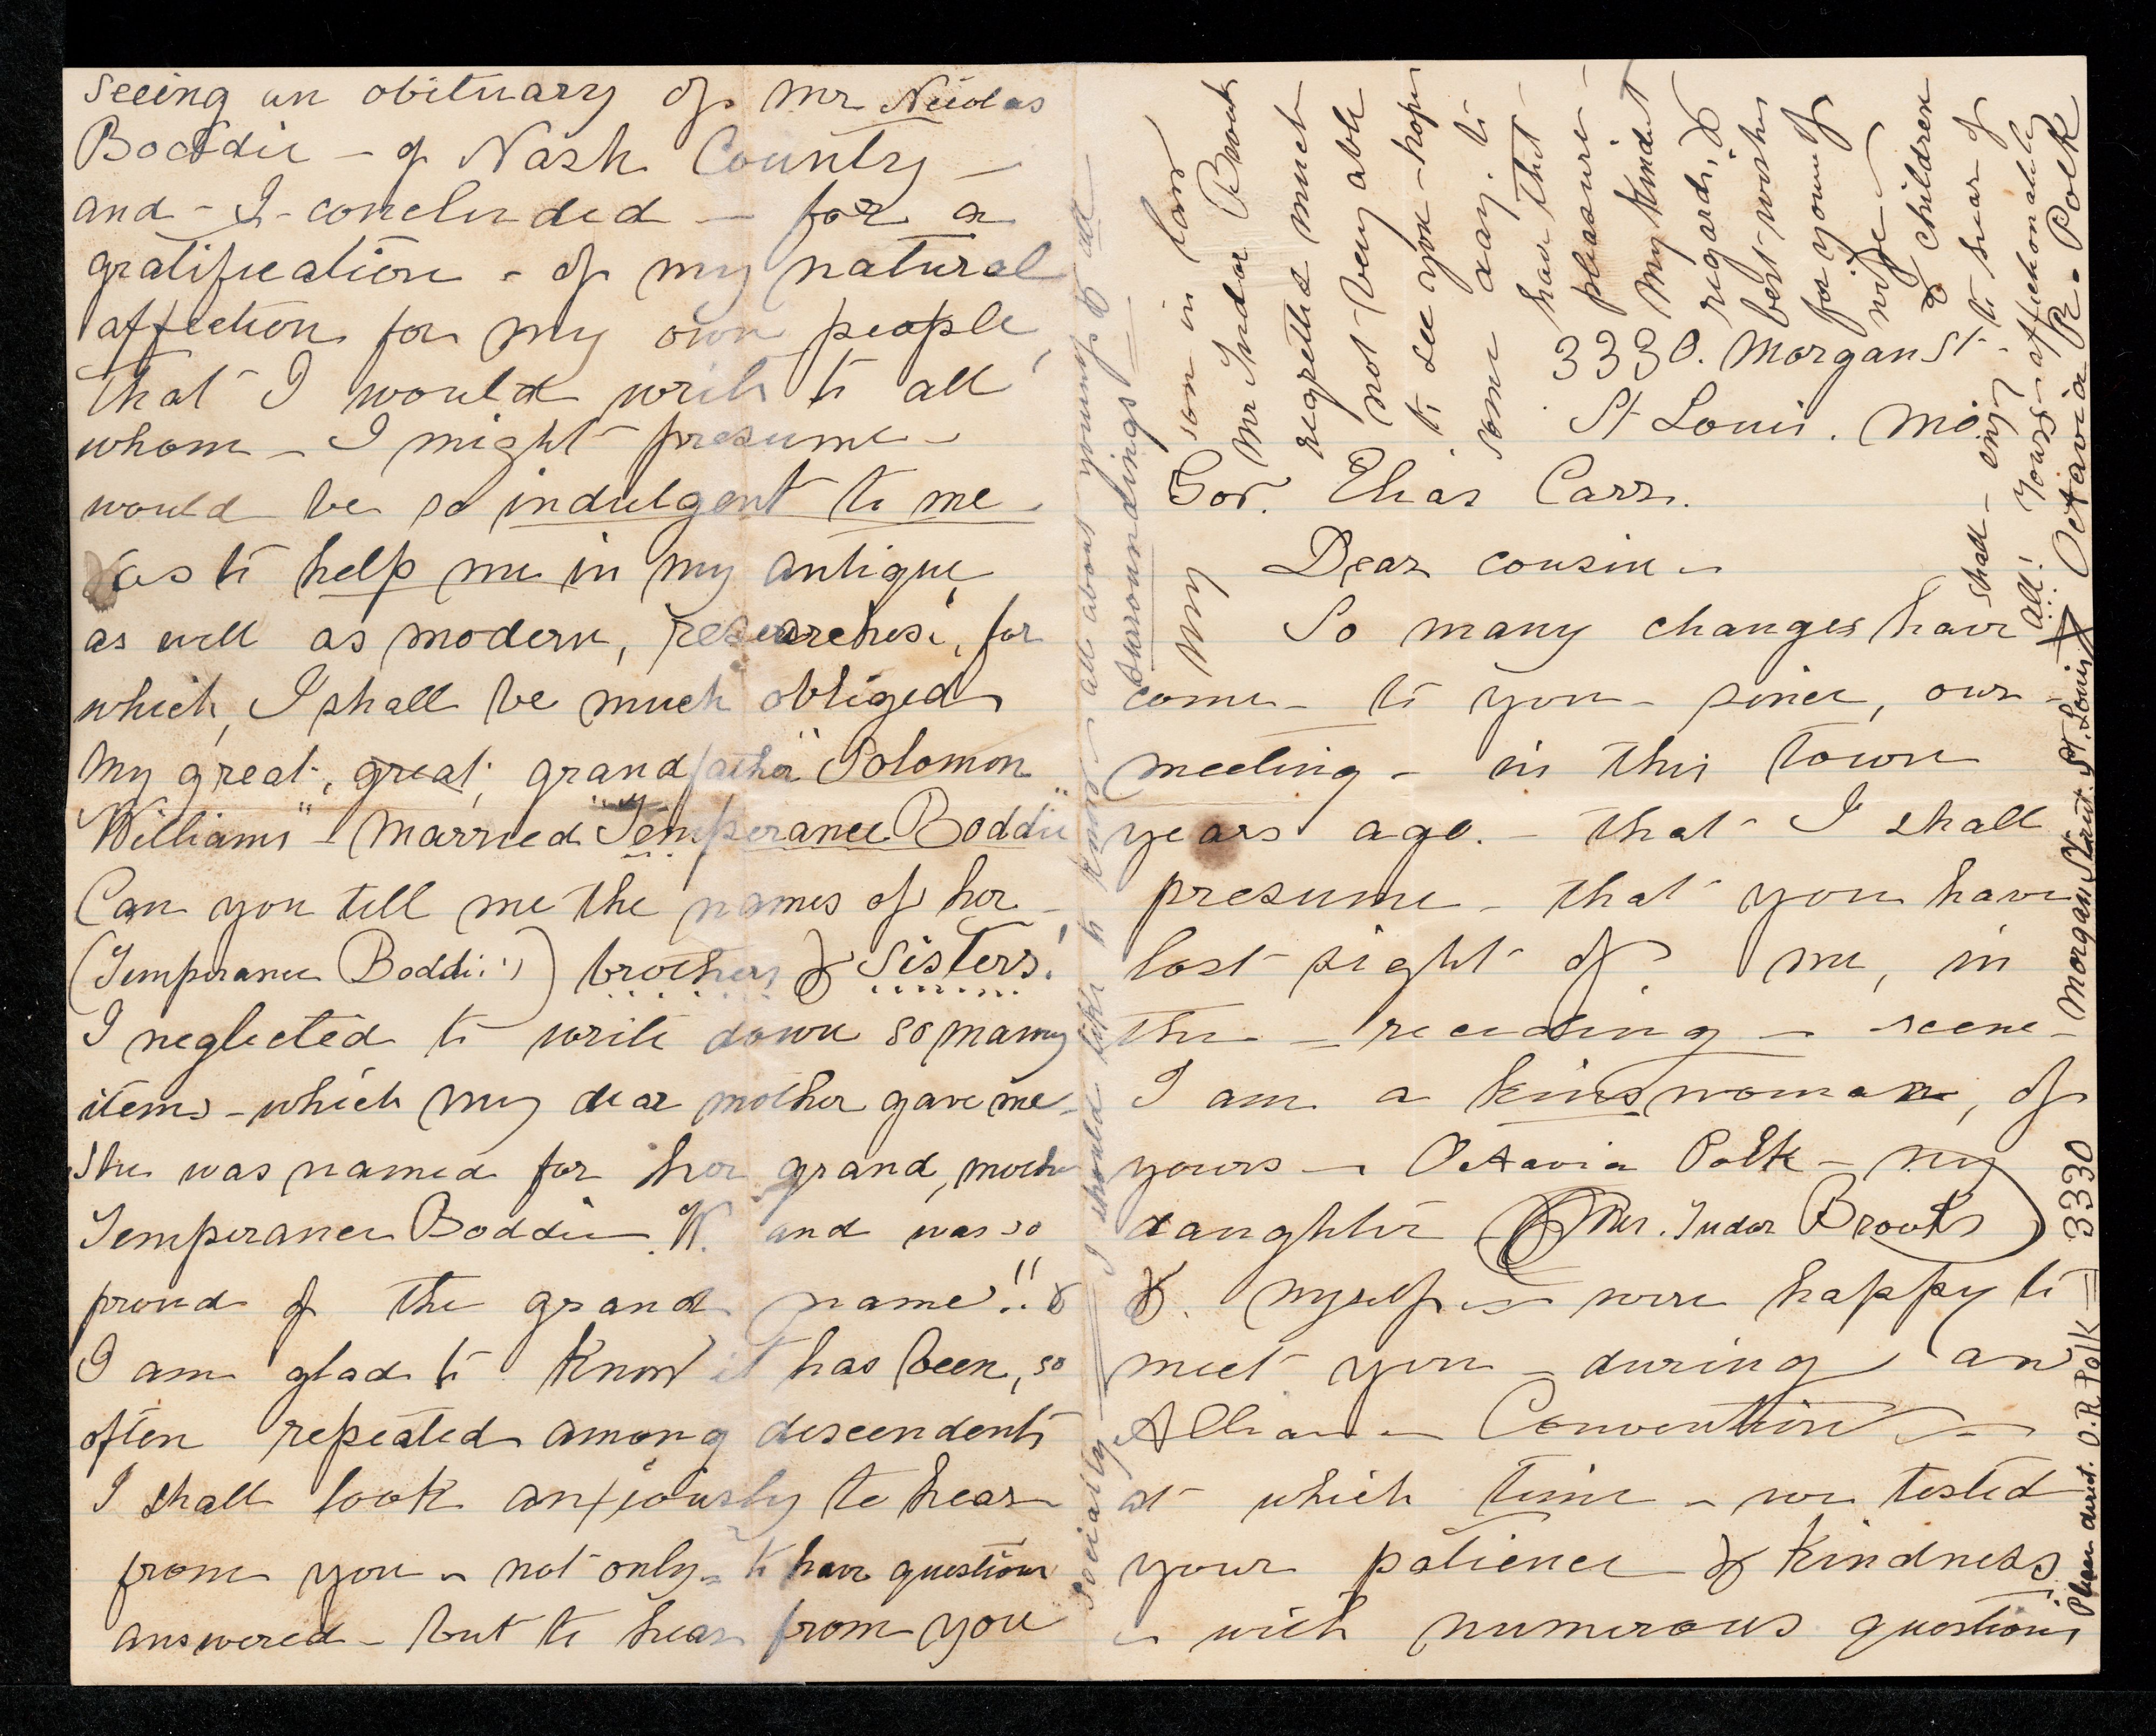 3330. Morgan St.
St Louis. Mo.
Gov. Elias Carr.
Dear cousin -
So many changes have
come - to you - since, our
meeting - in this town
years ago. - that I shall
presume - that you have
lost sight of me, in
the - receding - scene -
I am a kinswoman, of
yours - Octavia Polk - my
daughter (Mrs. Tudor Brooks)
&. myself - were happy to
meet you - during an
Alliance Convention -
at which time - we tested
your patience & kindness
- with numerous questions
seeing an obituary of Mr Nicolas
Boddie - of Nash County -
and - I - concluded - for a
gratification - of my natural
affection for my own people,
that I would write to all
whom - I might presume -
would be so indulgent to me -
as to help me in my antique
as well as modern, researches, for
which, I shall be much obliged
My great, great, grandfather "Solomon
Williams" - married "Temperance Boddie"
Can you tell me the names of her -
(Temperance Boddie:) brothers & sisters!
I neglected to write down so many
items - which my dear mother gave me -
She was named for her grand, mother
Temperance Boddie W. and was so
proud of the grand name!! &
I am glad to know it has been, so
often repeated among descendents
I shall look anxiously to hear
from you - not only - to have questions
answered - but to hear from you
socially - I should like to know - all about yourself & all
surroundings
My son in law
Mr Tudor Brooks
regretted much
not being able
to see you - hope
some day. to
have that
pleasure -
My kindest
regards, &
best wishes
for yourself
wife -
& children
shall - enjoy - to hear of
all! Yours - affectionately
Octavia R. Polk
Please direct. O. R. Polk - 3330 Morgan Street. St. Louis